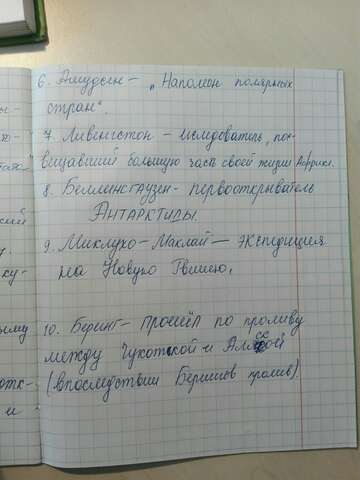 6. Амудсен – „Наполеон полярных
стран".
7. Ливенгстон – иследователь, пос-
вещавший большую часть своей жизни Африке.
8. Белленсгаузен – первооткрыватель
АНТАРКТИДЫ.
9. Миклухо – Маклай – экспедиция
на Новую Гвинею.
10. Беринг – прошёл по проливу
между Чукоткой и Аляской
(впоследствии Берингов пролив).